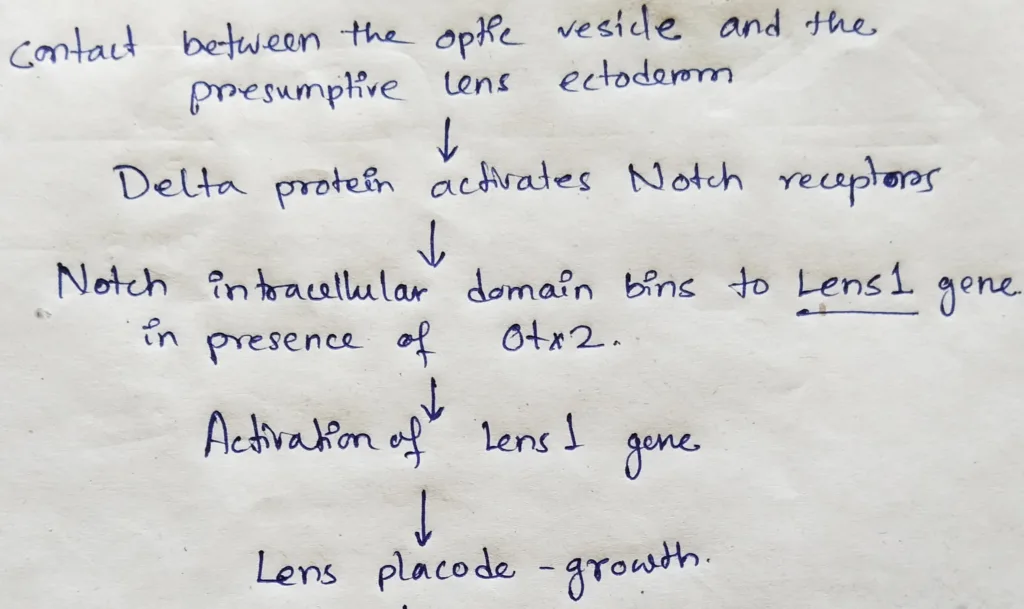 Contact between the optic vesicle and the
presumptive lens ectoderm
↓
Delta protein activates Notch receptors
↓
Notch intracellular domain bins to Lens1 gene
in presence of Otx2.
↓
Activation of Lens1 gene
↓
Lens placode - growth.